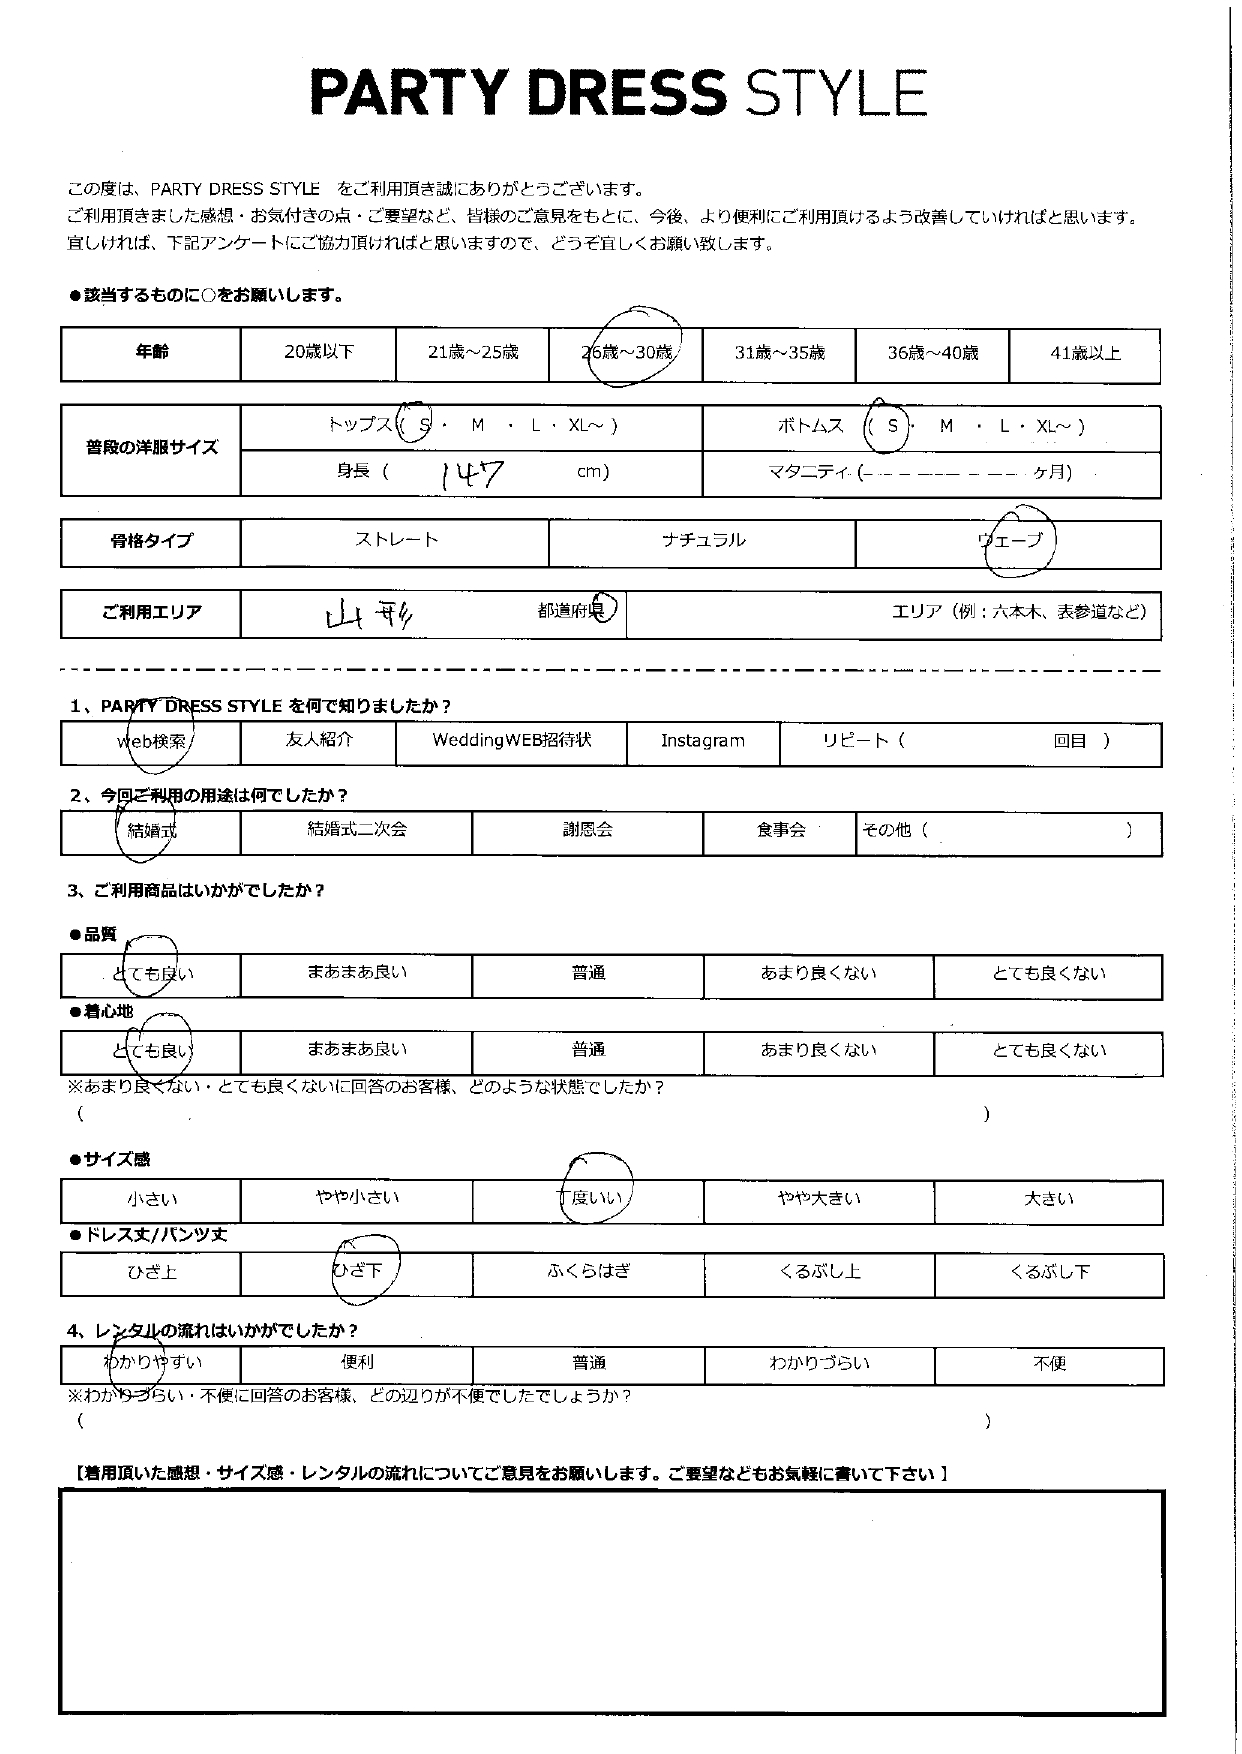 PARTY DRESS STYLE
この度は、PARTY DRESS STYLE をご利用頂き誠にありがとうございます。
ご利用頂きました感想・お気付きの点・ご要望など、皆様のご意見をもとに、今後、より便利にご利用頂けるよう改善していければと思います。
宜しければ、下記アンケートにご協力頂ければと思いますので、どうぞ宜しくお願い致します。
●該当するものに○をお願いします。
年齢 20歳以下 21歳～25歳 26歳～30歳 31歳～35歳 36歳～40歳 41歳以上
普段の洋服サイズ
トップス ( S ・ M ・ L ・ XL～ ) ボトムス ( S ・ M ・ L ・ XL～ )
身長 ( 147 cm) マタニティ (- - - - - - - - - - ヶ月)
骨格タイプ ストレート ナチュラル ウェーブ
ご利用エリア 山形 都道府県 エリア（例：六本木、表参道など）
1、PARTY DRESS STYLE を何で知りましたか？
web検索 友人紹介 WeddingWEB招待状 Instagram リピート（ 回目 ）
2、今回ご利用の用途は何でしたか？
結婚式 結婚式二次会 謝恩会 食事会 その他（ ）
3、ご利用商品はいかがでしたか？
●品質
とても良い まあまあ良い 普通 あまり良くない とても良くない
●着心地
とても良い まあまあ良い 普通 あまり良くない とても良くない
※あまり良くない・とても良くないに回答のお客様、どのような状態でしたか？
（ ）
●サイズ感
小さい やや小さい 丁度いい やや大きい 大きい
●ドレス丈/パンツ丈
ひざ上 ひざ下 ふくらはぎ くるぶし上 くるぶし下
4、レンタルの流れはいかがでしたか？
わかりやすい 便利 普通 わかりづらい 不便
※わかりづらい・不便に回答のお客様、どの辺りが不便でしたでしょうか？
（ ）
【着用頂いた感想・サイズ感・レンタルの流れについてご意見をお願いします。ご要望などもお気軽に書いて下さい 】